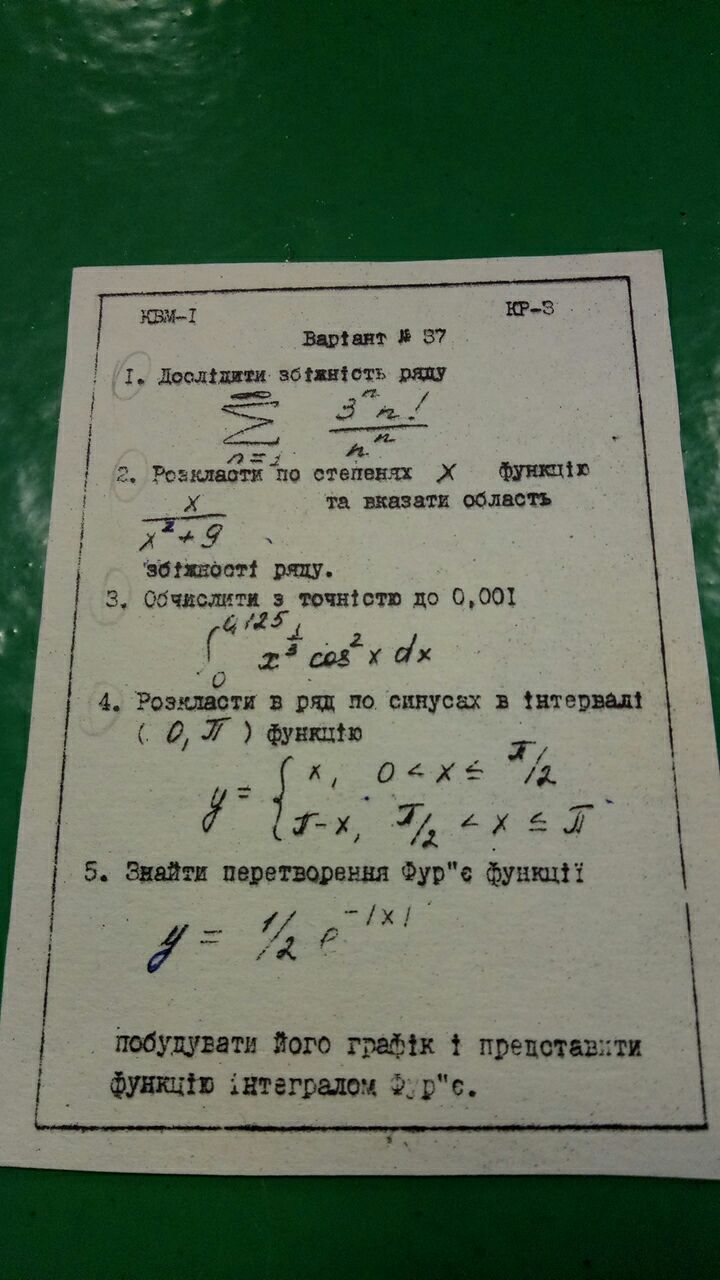 КВМ-I КР-3
Варіант № 37
1. Дослідити збіжність ряду
∑ n=1 ∞ 3ⁿn!/nⁿ
2. Розкласти по степенях x функцію
x/(x²+9) та вказати область
збіжності ряду.
3. Обчислити з точністю до 0,001
∫₀^0,125 x^(1/3) cos²x dx
4. Розкласти в ряд по синусах в інтервалі
( 0, π ) функцію
y = { x, 0 < x ≤ π/2
π-x, π/2 < x ≤ π
5. Знайти перетворення Фур"є функції
y = 1/2 e^-|x|
побудувати його графік і представити
функцію інтегралом Фур"є.